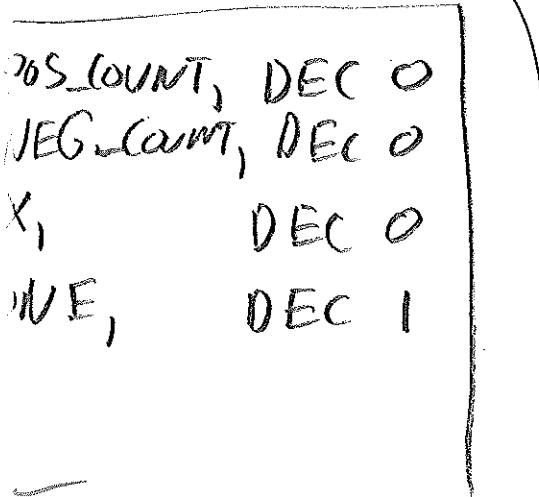 POS_COUNT, DEC 0
NEG_COUNT, DEC 0
X, DEC 0
ONE, DEC 1